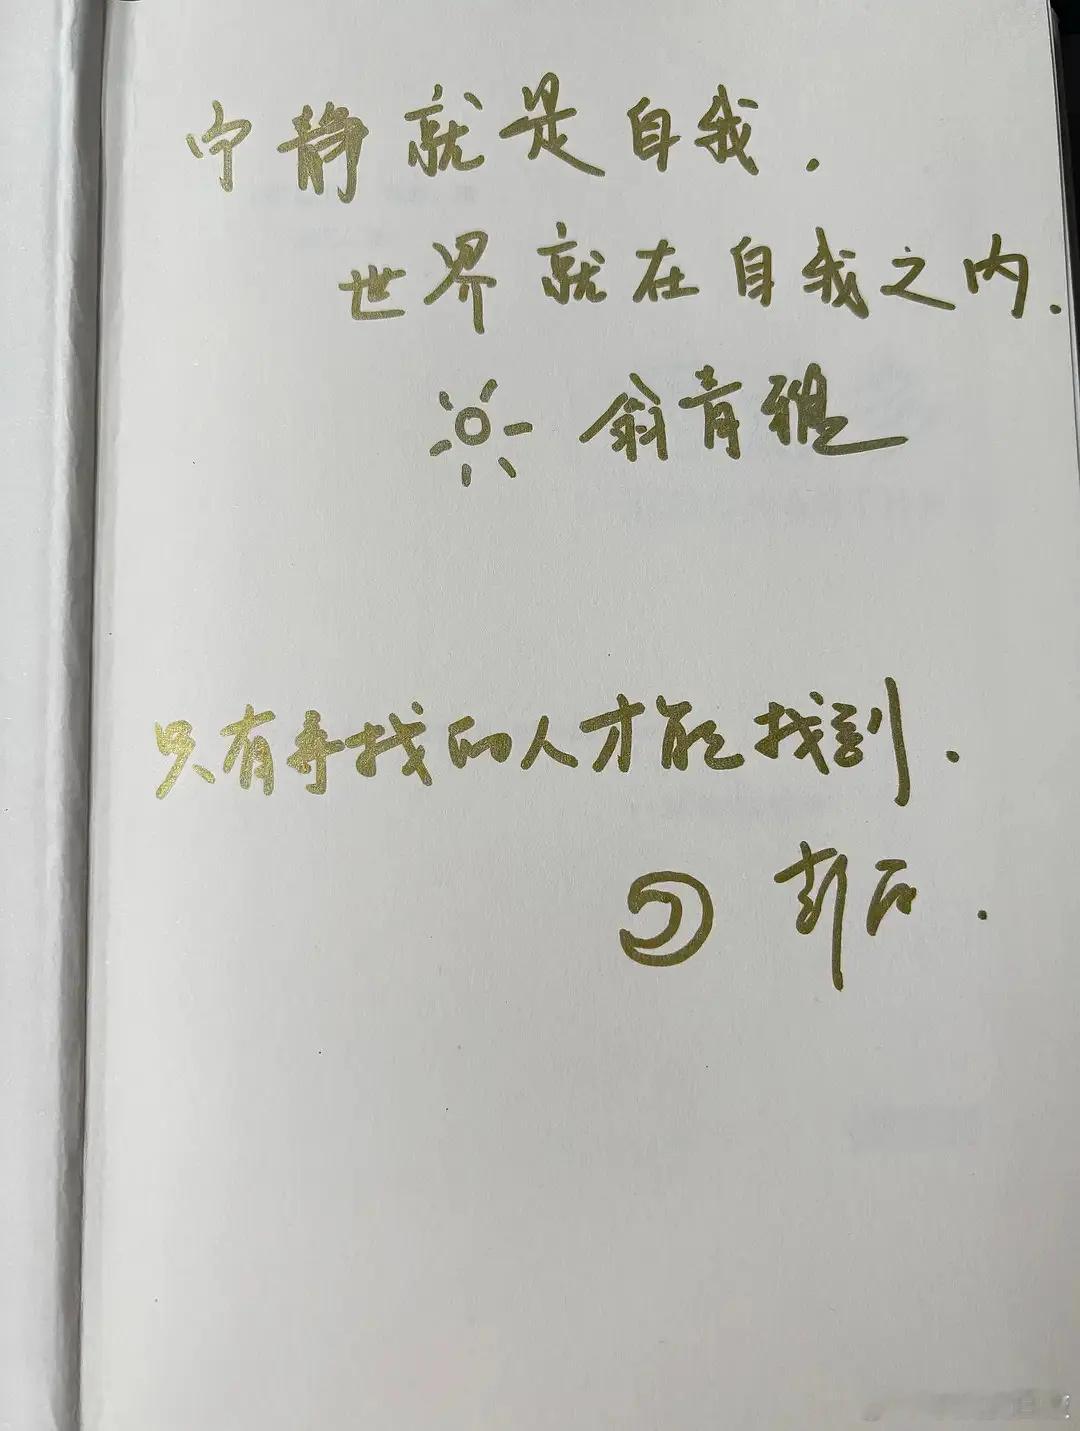 宁静就是自我.
世界就在自我之内.
翁青雅
只有寻找的人才能找到.
彭石.